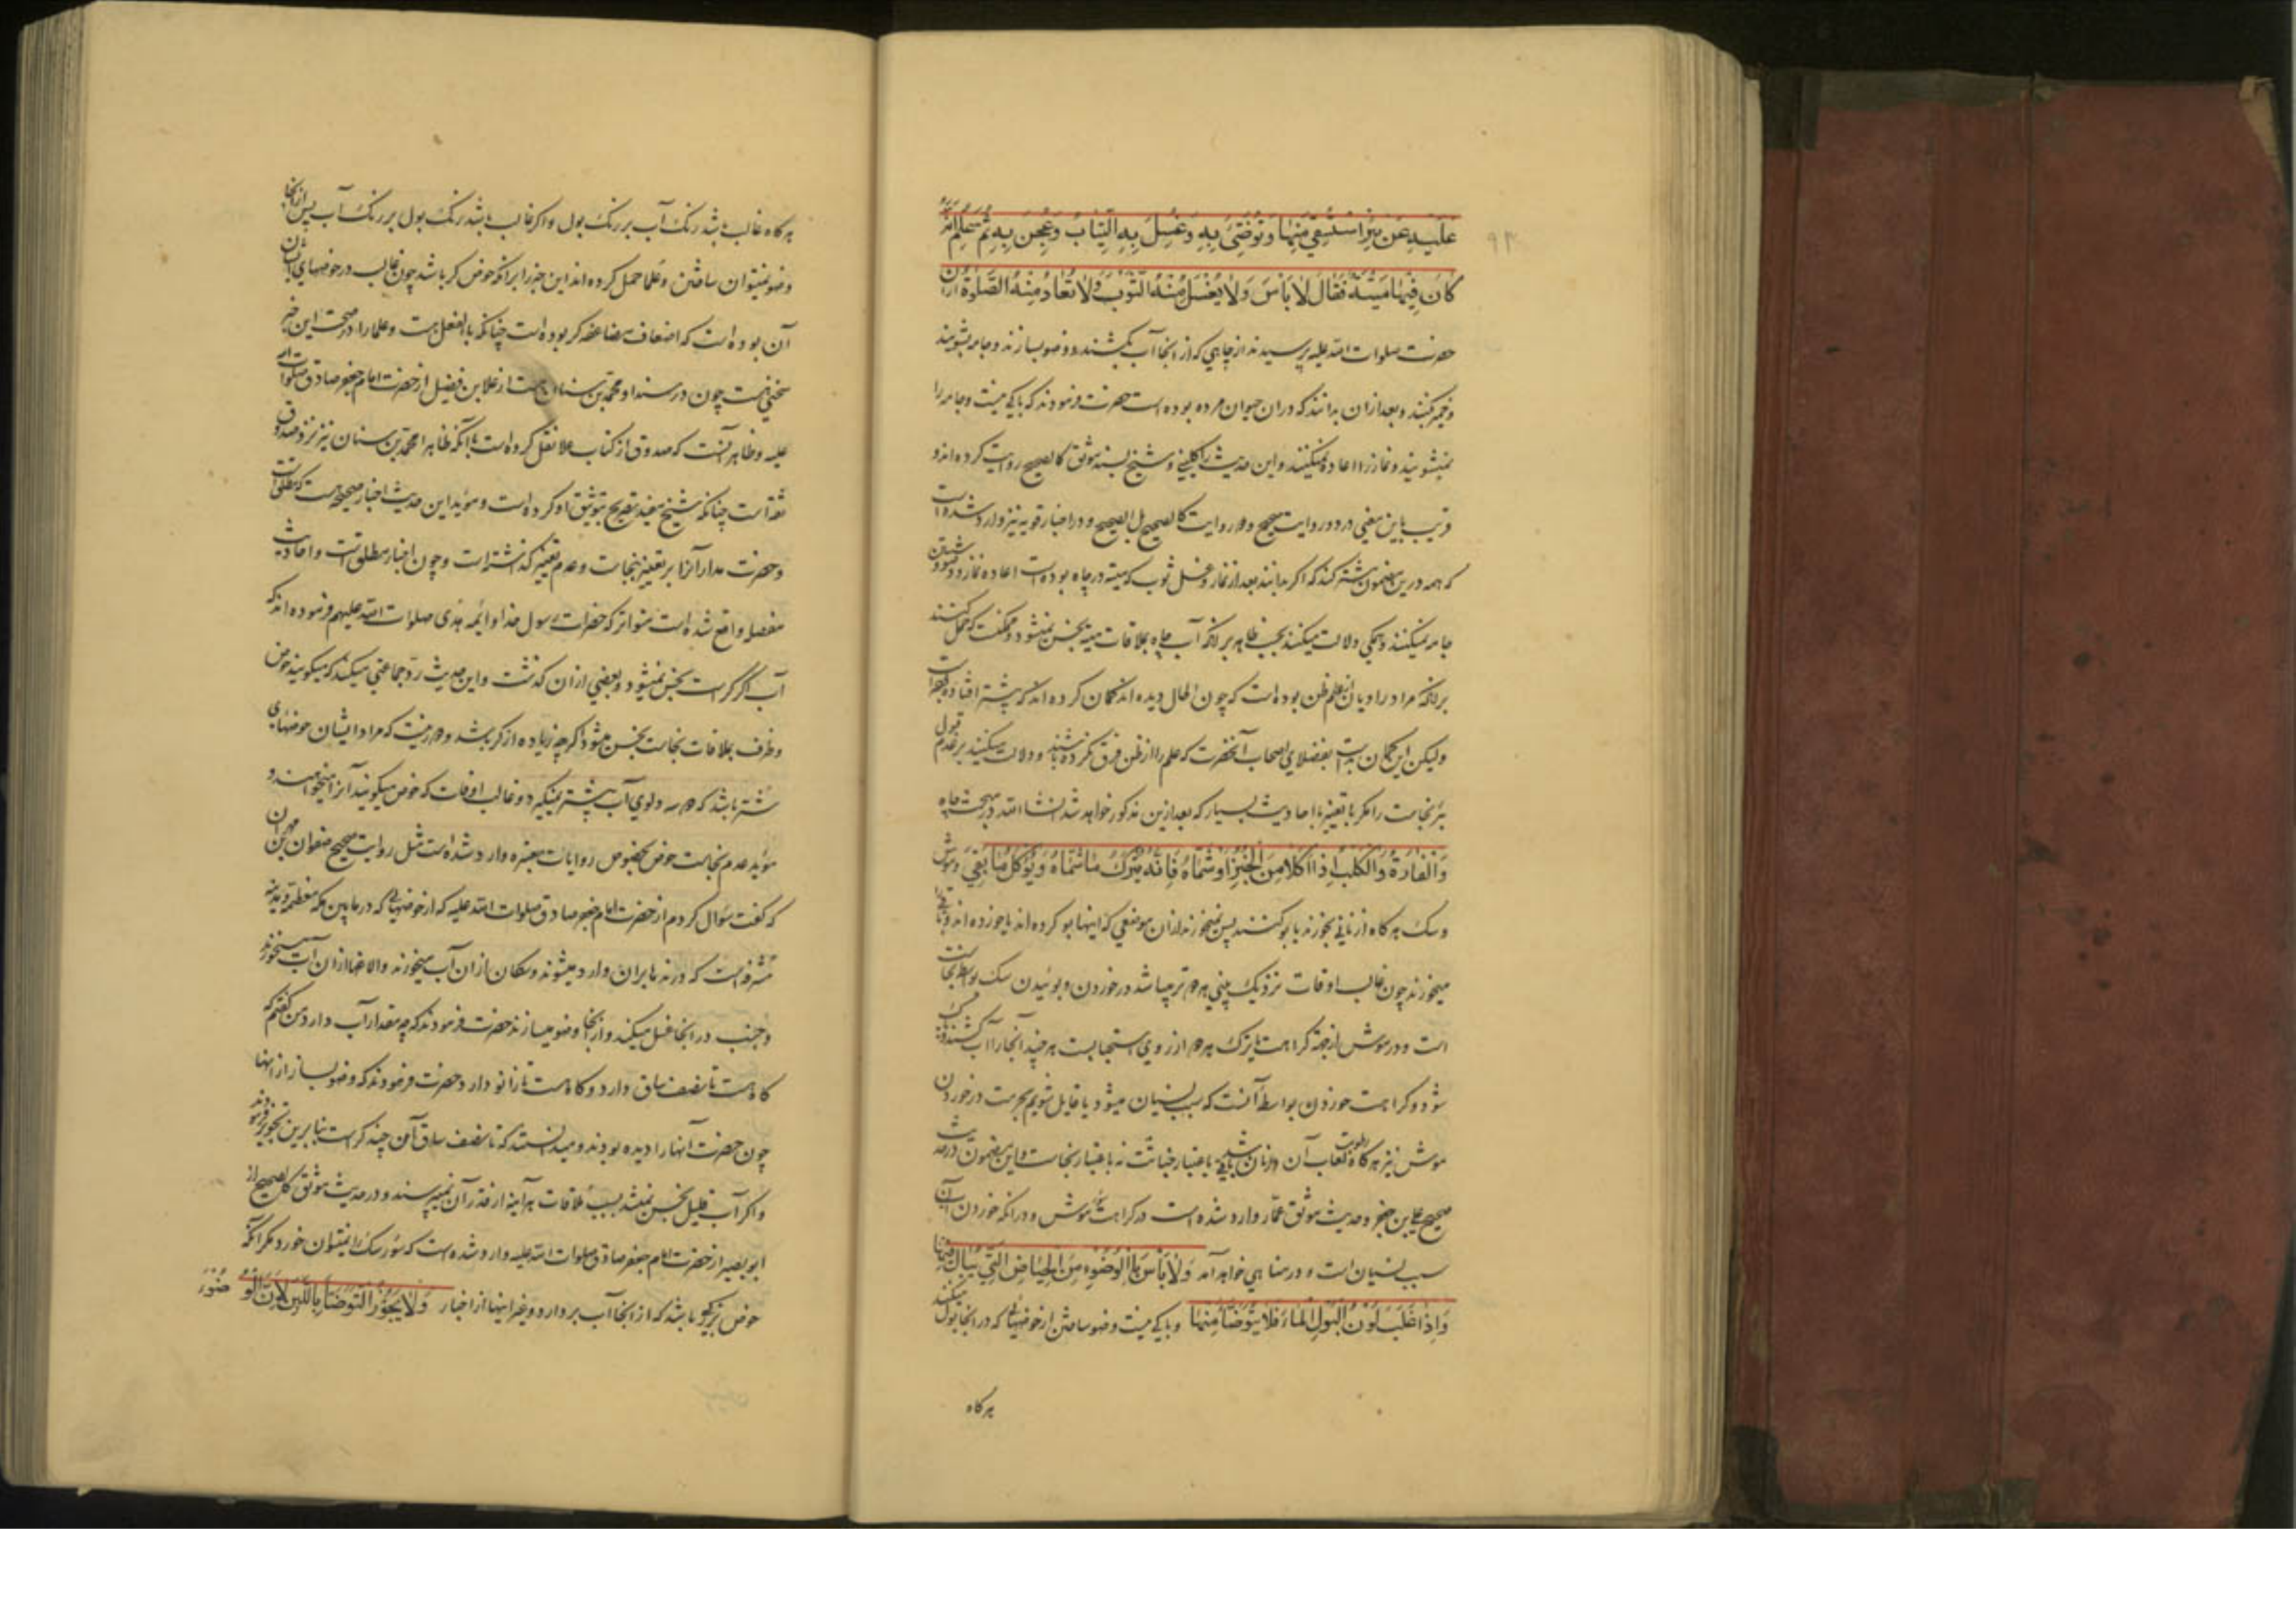 ۹۳
عَلَیْهِ عَنْ بِئْرٍ اسْتُسْقِیَ مِنْهَا وَتُوُضِّئَ بِهِ وَغُسِلَ بِهِ الثِّیَابُ وَعُجِنَ بِهِ ثُمَّ عُلِمَ اَنَّهُ
کَانَ فِیهَا مَیْتَةٌ فَقَالَ لَا بَأْسَ وَلَا یُغْسَلُ مِنْهُ الثَّوْبُ وَلَا تُعَادُ مِنْهُ الصَّلٰوةُ ازان
حضرت صلوات الله علیه پرسیدند از چاهی که از انجا آب بکشند و وضو بسازند و جامه بشویند
و خمیر کنند و بعد از ان بدانند که در ان حیوان مرده بوده است حضرت فرمودند که باکی نیست و جامه را
نمیشویند و نماز را اعاده نمیکنند و این حدیث را کلینی و شیخ بسند موثق کالصحیح روایت کرده اند و
قریب باین معنی در دو روایت صحیح و دو روایت کالصحیح بل الصحیح و در اخبار قویه نیز وارد شده است
که همه درین مضمون مشترکند که اگر بدانند بعد از نماز و غسل ثوب که میته در چاه بوده است اعاده نماز و وضو و شستن
جامه نمیکنند و همگی دلالت میکنند بحسب ظاهر بر انکه آب چاه بملاقات میته نجس نمیشود و ممکنست که حمل کنند
بر انکه مراد راویان از علم ظن بوده است که چون الحال دیده اند گمان کرده اند که پیشتر افتاده
ولیکن این گمان بد است بفضلای اصحاب آنحضرت که علم را از ظن فرق نکرده باشند و دلالت میکنند بر عدم قبول
بئر نجاست را مگر با تغییر با احادیث بسیار که بعد ازین مذکور خواهد شد انشاالله در مبحث چاه
وَالْفَارَةُ وَالْکَلْبُ اِذَا اَکَلَا مِنَ الْخُبْزِ اَوْ شَمَّاهُ فَاِنَّهُ یُتْرَکُ مَا شَمَّاهُ وَیُؤْکَلُ مَا بَقِیَ و موش
و سک هر کاه از نانی بخورند یا بو کنند پس نمیخورند از ان موضعی که اینها بو کرده اند یا خورده اند و باقی را
میخورند چون غالب اوقات نزدیک بینی هر دو تر میباشد در خوردن و بوئیدن سک بواسطه نجاست
است و در موش از جهة کراهت یا ترک هر دو از روی استحبابست هر چند
شود و کراهت خوردن بواسطه آنست که سبب نسیان میشود یا قایل شویم بحرمت در خوردن
موش نیز هر کاه رطوبت لعاب آن در نان باشد باعتبار خباثت نه باعتبار نجاست و این مضمون در حدیث
صحیح علی بن جعفر و حدیث موثق عمار وارد شده است در کراهت سؤر موش و در انکه خوردن آن
سبب نسیان است و در مناهی خواهد آمد وَلَا بَأْسَ بِالْوُضُوءِ مِنَ الْحِیَاضِ الَّتِی یُبَالُ فِیهَا
وَاِذَا غَلَبَ لَوْنُ الْبَوْلِ الْمَاءَ فَلَا یُتَوَضَّأُ مِنْهَا و باکی نیست وضو ساختن از حوضهائی که در انجا بول میکنند
هر کاه
هر کاه غالب باشد رنک آب بر رنک بول و اکر غالب باشد رنک بول بر رنک آب پس از انجا
وضو نمیتوان ساختن و علما حمل کرده اند این خبر را بر انکه حوض کر باشد چون غالب در حوضهای ایشان
آن بوده است که اضعاف مضاعفه کر بوده است چنانکه بالفعل هست و علما را در صحت این خبر
سخنی هست چون در سند او محمد بن سنان هست از علا بن فضیل از حضرت امام جعفر صادق صلوات الله
علیه و ظاهر آنست که صدوق از کتاب علا نقل کرده است با آنکه ظاهرا محمد بن سنان نیز نزد صدوق
ثقه است چنانکه شیخ مفید تصریح بتوثیق او کرده است و موید این حدیث اخبار صحیحه هست که مطلق است
و حضرت مدار آنرا بر تغییر نجاست و عدم تغییر گذاشته است و چون اخبار مطلق است و احادیث
مفصل واقع شده است متواتر که حضرات رسول خدا و ایمه هدی صلوات الله علیهم فرموده اند که
آب اکر کر است نجس نمیشود و بعضی از ان گذشت و این حدیث رد جماعتی میکند که میگویند حوض
و ظرف بملاقات نجاست نجس میشود اکرچه زیاده از کر باشد و دور نیست که مراد ایشان حوضهای
شتر باشد که دو سه دلوی آب بیشتر نمیکیرد و غالب اوقات که حوض میکویند آنرا میخواهند و
موید عدم نجاست حوض بخصوص روایات معتبره وارد شده است مثل روایت صحیح صفوان بن مهران
که گفت سؤال کردم از حضرت امام جعفر صادق صلوات الله علیه که از حوضهائی که در مابین مکه معظمه و مدینه
مشرفه است که درنده ها بران وارد میشوند و سکان از ان آب میخورند و الاغها از ان آب میخورند
و جنب در انجا غسل میکند و از انجا وضو میسازند حضرت فرمودند که چه مقدار آب دارد من گفتم که
کاه هست تا نصف ساق دارد و کاه هست تا زانو دارد حضرت فرمودند که وضو بساز از انها
چون حضرت آنها را دیده بودند و میدانستند که تا نصف ساق آن چند کر است بنابرین تجویز فرمودند
و اکر آب قلیل نجس نمیشد بسبب ملاقات هر آینه از قدر آن نمیپرسند و در حدیث موثق کالصحیح از
ابو بصیر از حضرت امام جعفر صادق صلوات الله علیه وارد شده است که سؤر سک را نمیتوان خورد مکر انکه
حوض بزرگی باشد که از انجا آب بردارد و غیر اینها از اخبار وَلَا یَجُوزُ التَّوَضُّأُ بِاللَّبَنِ لِاَنَّ الْوُضُوءَ